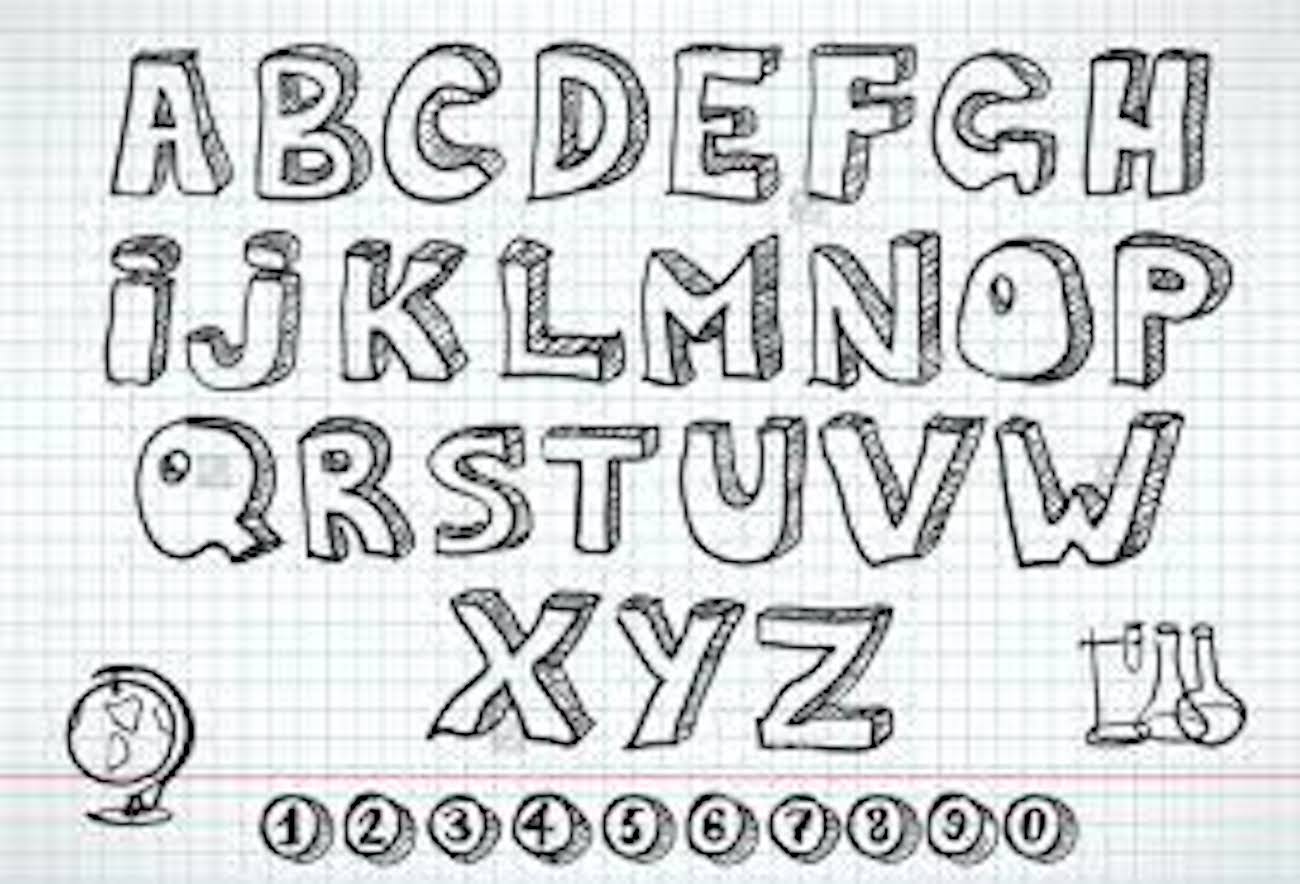 ABCDEFGH
ijKLMNOP
QRSTUVW
XYZ
1 2 3 4 5 6 7 8 9 0